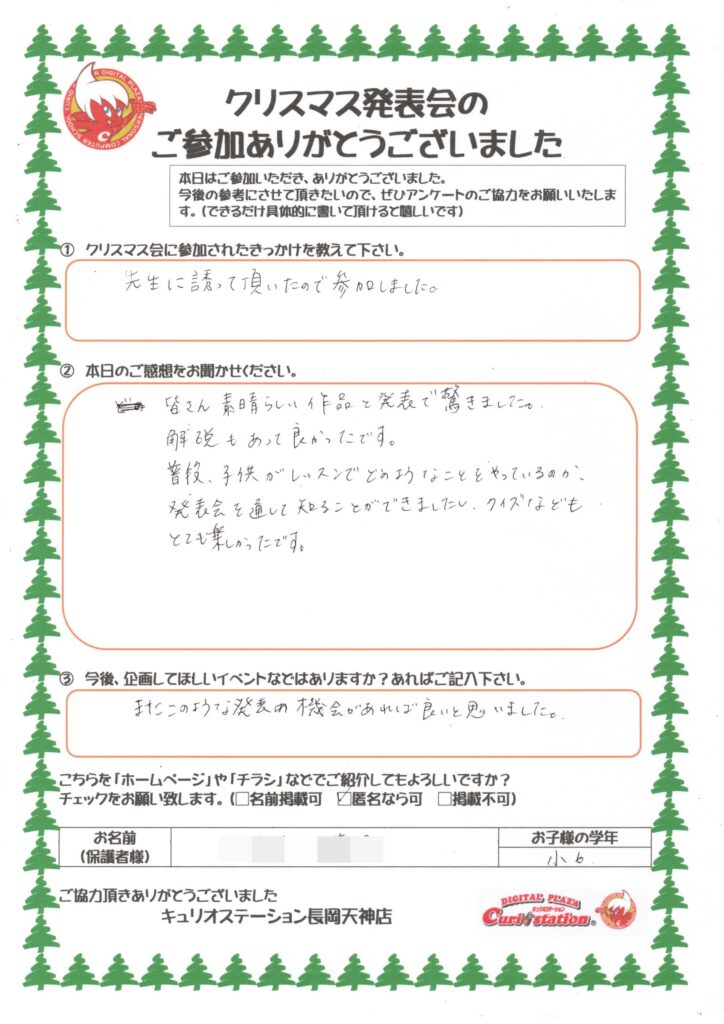 クリスマス発表会の
ご参加ありがとうございました
本日はご参加いただき、ありがとうございました。
今後の参考にさせて頂きたいので、ぜひアンケートのご協力をお願いいたしま
す。(できるだけ具体的に書いて頂けると嬉しいです)
① クリスマス会に参加されたきっかけを教えて下さい。
先生に誘って頂いたので参加しました。
② 本日のご感想をお聞かせください。
皆さん素晴らしい作品と発表で驚きました。
解説もあって良かったです。
普段、子供がレッスンでどのようなことをやっているのか、
発表会を通して知ることができましたし、クイズなども
とても楽しかったです。
③ 今後、企画してほしいイベントなどはありますか?あればご記入下さい。
またこのような発表の機会があれば良いと思いました。
こちらを「ホームページ」や「チラシ」などでご紹介してもよろしいですか?
チェックをお願い致します。(□名前掲載可 ☑匿名なら可 □掲載不可)
お名前
(保護者様)
お子様の学年
小6
ご協力頂きありがとうございました
キュリオステーション長岡天神店
DIGITAL PLAZA
キュリオステーション
Curio station